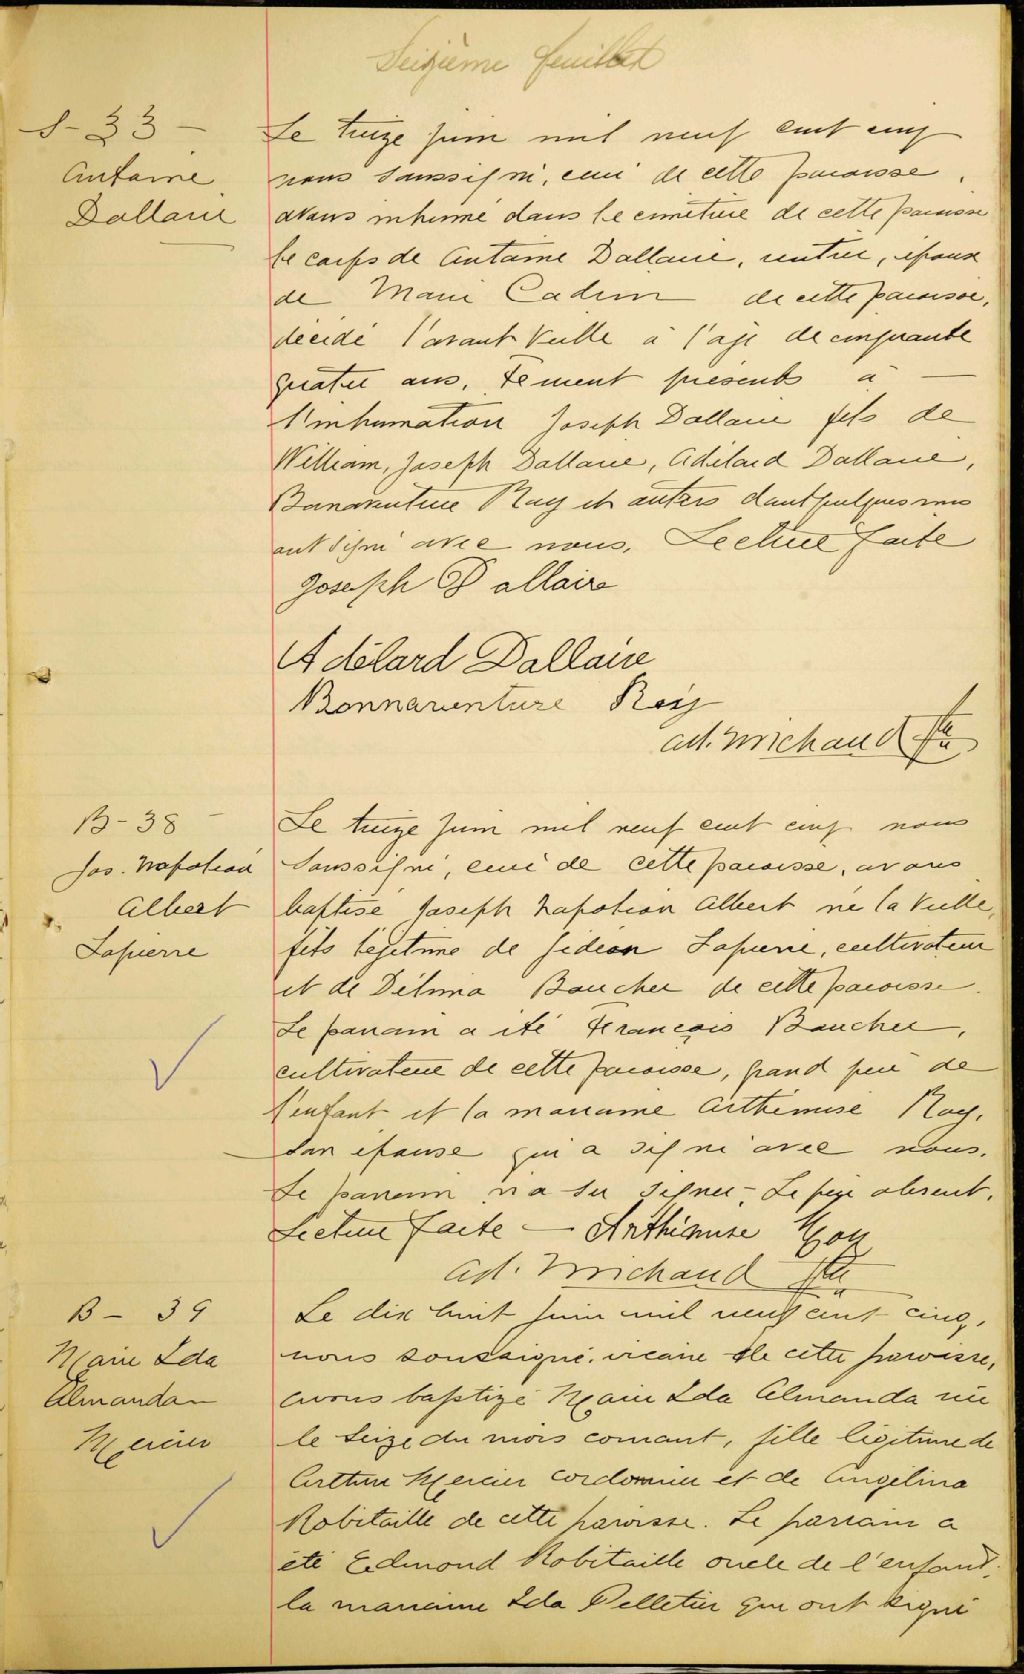 Seizième feuillet
S-33-
Antoine
Dallaire
Le treize juin mil neuf cent cinq
nous soussigné, curé de cette paroisse,
avons inhumé dans le cimetière de cette paroisse
le corps de Antoine Dallaire, rentier, époux
de Marie Cadrin de cette paroisse,
décédé l'avant veille à l'age de cinquante
quatre ans. Furent présents à —
l'inhumation Joseph Dallaire fils de
William, Joseph Dallaire, Adélard Dallaire,
Bonaventure Roy et autres dont quelques uns
ont signé avec nous. Lecture faite
Joseph Dallaire
Adélard Dallaire
Bonnaventure Roy
Ad. Michaud Ptre
B-38-
Jos. Napoléon
Albert
Lapierre
Le treize juin mil neuf cent cinq nous
soussigné, curé de cette paroisse, avons
baptisé Joseph Napoléon Albert né la veille,
fils légitime de Gédéon Lapierre, cultivateur
et de Délima Boucher de cette paroisse.
Le parrain a été François Boucher,
cultivateur de cette paroisse, grand père de
l'enfant et la marraine Arthémise Roy,
son épouse qui a signé avec nous.
Le parrain n'a su signer - Le père absent.
Lecture faite — Arthémise Roy
Ad. Michaud Ptre
B- 39
Marie Ida
Almanda
Mercier
Le dix huit juin mil neuf cent cinq,
nous soussigné, vicaire de cette paroisse,
avons baptizé Marie Ida Almanda née
le seize du mois courant, fille légitime de
Arthur Mercier cordonnier et de Angélina
Robitaille de cette paroisse. Le parrain a
été Edmond Robitaille oncle de l'enfant,
la marraine Ida Pelletier qui ont signé